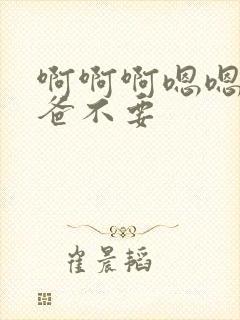 啊啊啊嗯嗯
爸不要
崔晨韬